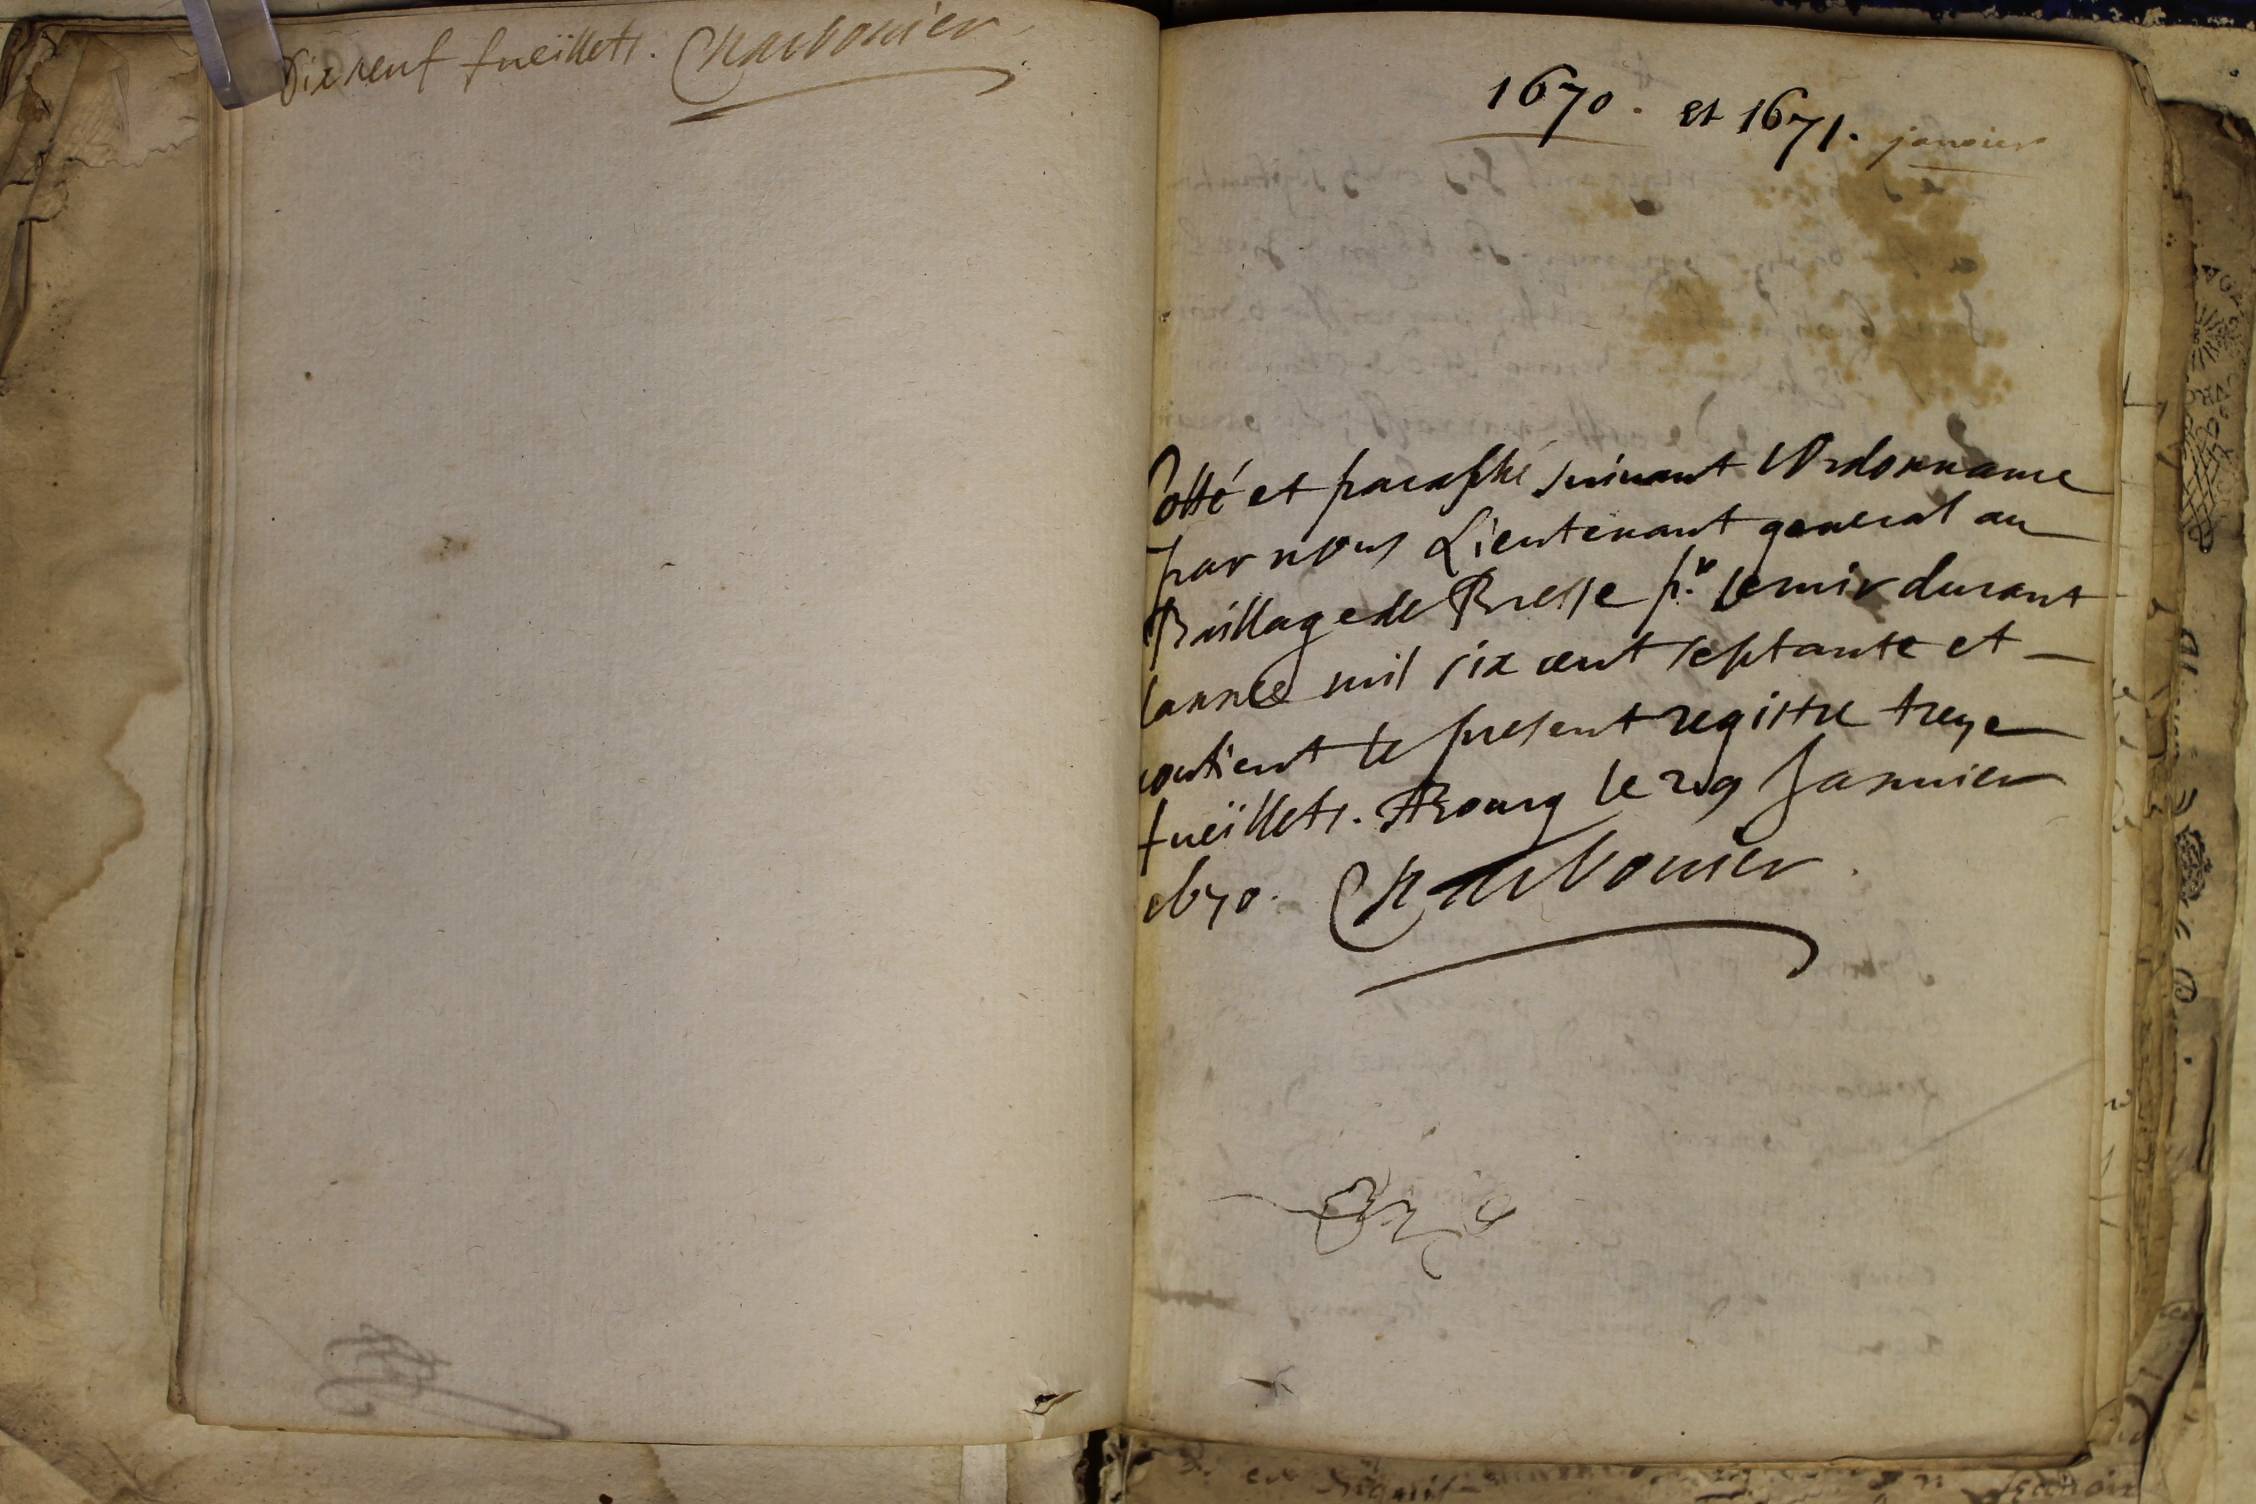 Dix neuf fueillets. Charbonier
1670. et 1671. janvier
Cotté et paraphé suivant l'Ordonnance
par nous Lieutenant general au
Baillage de Bresse pr. servir durant
lannée mil six cent septante et
contient le present registre treze
fueillets. A Bourg le 29 Janvier
1670. Charbonier